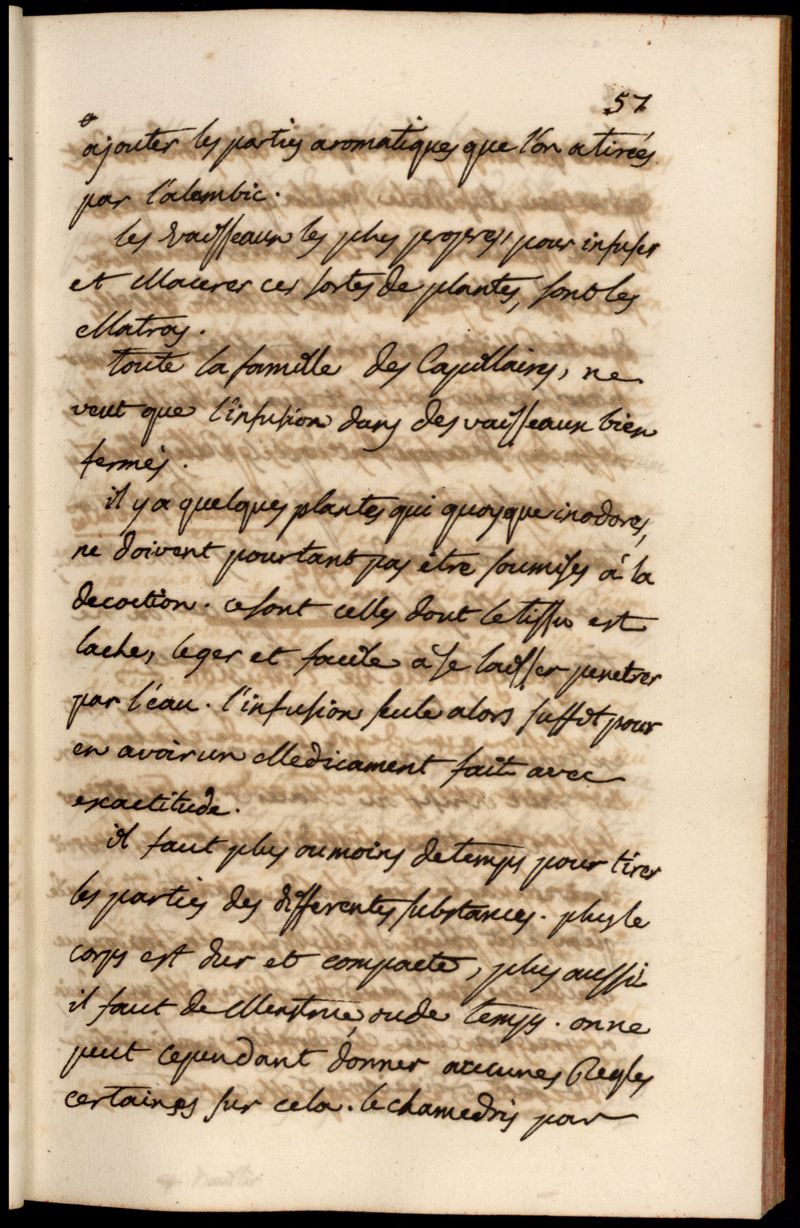 57
ajouter les parties aromatiques que l'on a tirées
par l'alembic.
les vaisseaux les plus propres, pour infuser
et Macerer ces sortes de plantes, sont les
Matras.
toute la famille des Capillaires, ne
veut que l'infusion dans des vaisseaux bien
fermés.
il y a quelques plantes qui quoyque inodores,
ne doivent pourtant pas être soumises à la
decoction. ce sont celles dont le tissu est
lache, leger et facile à se laisser penetrer
par l'eau. l'infusion seule alors suffit pour
en avoir un Medicament fait avec
exactitude.
il faut plus ou moins de temps pour tirer
les parties des differentes substances. plus le
corps est dur et compacte, plus aussi
il faut de Menstrue, ou de temps. on ne
peut cependant donner aucunes Regles
certaines sur cela. le chamedris par